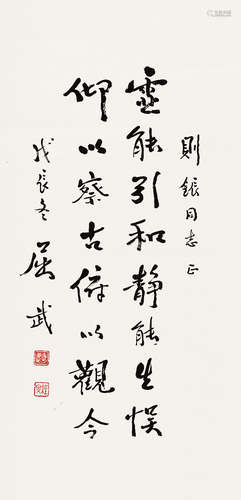 則鋃同志正
虛能引和靜能生悟
仰以察古俯以觀今
戊辰冬屈武